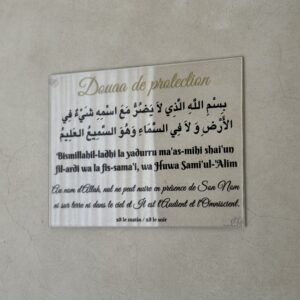 Douaa de protection
بِسْمِ اللَّهِ الَّذِي لاَ يَضُرُّ مَعَ اسْمِهِ شَيْءٌ فِي
الأَرْضِ وَ لاَ فِي السَّمَاءِ وَهُوَ السَّمِيعُ العَلِيمُ
'Bismillahil-ladhi la yadurru ma'as-mihi shai'un
fil-ardi wa la fis-sama'i, wa Huwa Sami'ul-'Alim
Au nom d'Allah, nul ne peut nuire en présence de Son Nom
ni sur terre ni dans le ciel et Il est l'Audient et l'Omniscient.
x3 le matin / x3 le soir